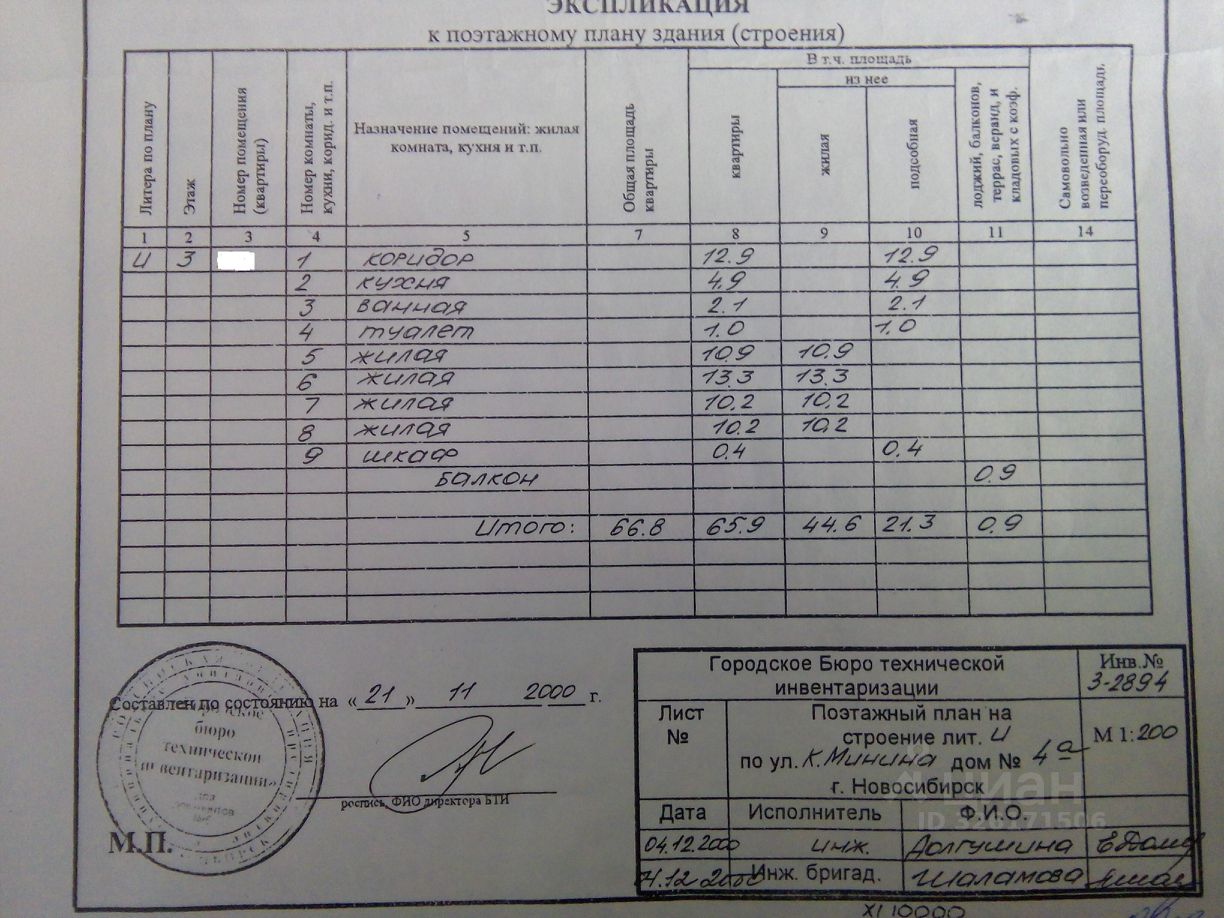 ЭКСПЛИКАЦИЯ
к поэтажному плану здания (строения)
Литера по плану
Этаж
Номер помещения (квартиры)
Номер комнаты, кухни, корид. и т.п.
Назначение помещений: жилая комната, кухня и т.п.
Общая площадь квартиры
В т.ч. площадь
из нее
квартиры
жилая
подсобная
лоджий, балконов, террас, веранд, и кладовых с коэф.
Самовольно возведенная или переоборуд. площадь.
1 2 3 4 5 7 8 9 10 11 14
И 3 1 коридор 12.9 12.9
2 кухня 4.9 4.9
3 ванная 2.1 2.1
4 туалет 1.0 1.0
5 жилая 10.9 10.9
6 жилая 13.3 13.3
7 жилая 10.2 10.2
8 жилая 10.2 10.2
9 шкаф 0.4 0.4
Балкон 0.9
Итого: 66.8 65.9 44.6 21.3 0.9
Составлен по состоянию на «21» 11 2000 г.
бюро
технической
инвентаризации»
роспись, ФИО директора БТИ
М.П.
Городское Бюро технической
инвентаризации
Инв.№
3-2894
Лист
№
Поэтажный план на
строение лит. И
по ул. К.Минина дом № 4а
г. Новосибирск
М 1:200
Дата Исполнитель Ф.И.О.
04.12.2000 инж. Долгушина
Инж. бригад. Шаламова
циан
ID 326171506
XI 10000